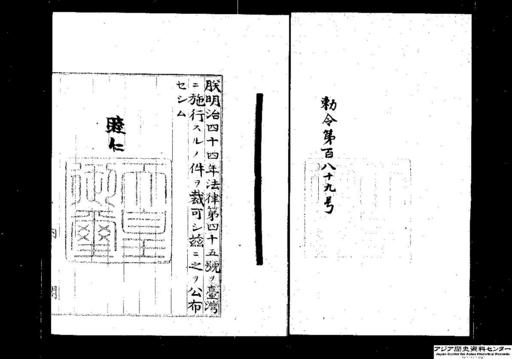 勅令第百八十九号
朕明治四十四年法律第四十五號ヲ臺灣
ニ施行スルノ件ヲ裁可シ茲ニ之ヲ公布
セシム
睦仁
天皇
御璽
アジア歴史資料センター
Japan Center for Asian Historical Records